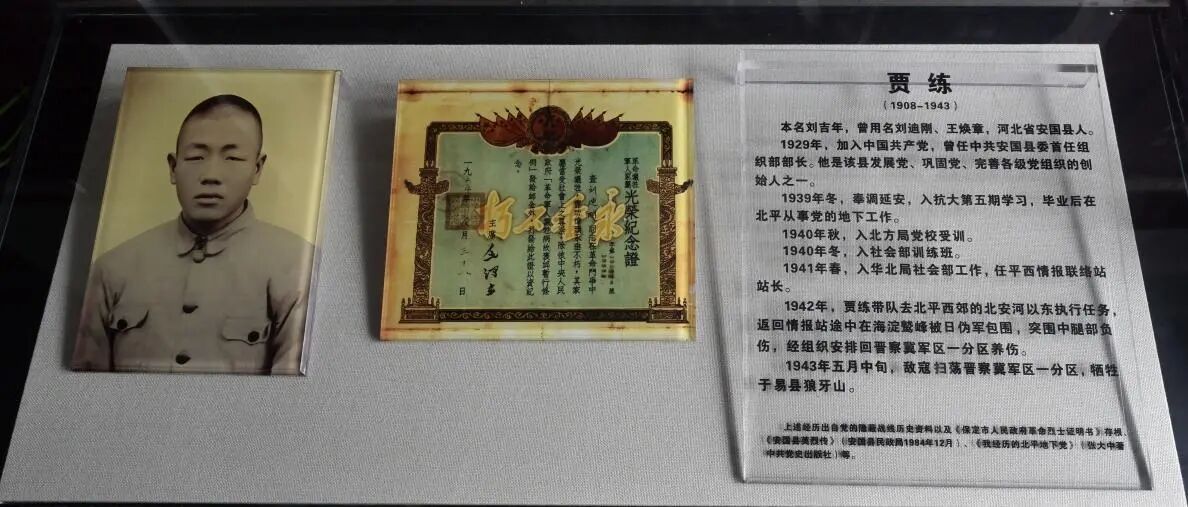 革命犧牲
軍人家屬光榮紀念證
永垂不朽
贾 练
（1908-1943）
本名刘吉年，曾用名刘迪刚、王焕章，河北省安国县人。
1929年，加入中国共产党，曾任中共安国县委首任组
织部部长。他是该县发展党、巩固党、完善各级党组织的创
始人之一。
1939年冬，奉调延安，入抗大第五期学习，毕业后在
北平从事党的地下工作。
1940年秋，入北方局党校受训。
1940年冬，入社会部训练班。
1941年春，入华北局社会部工作，任平西情报联络站
站长。
1942年，贾练带队去北平西郊的北安河以东执行任务，
返回情报站途中在海淀鹫峰被日伪军包围，突围中腿部负
伤，经组织安排回晋察冀军区一分区养伤。
1943年五月中旬，敌寇扫荡晋察冀军区一分区，牺牲
于易县狼牙山。
上述经历出自党的隐蔽战线历史资料以及《保定市人民政府革命烈士证明书》存根、
《安国县英烈传》（安国县民政局1984年12月）、《我经历的北平地下党》（张大中著
中共党史出版社）等。